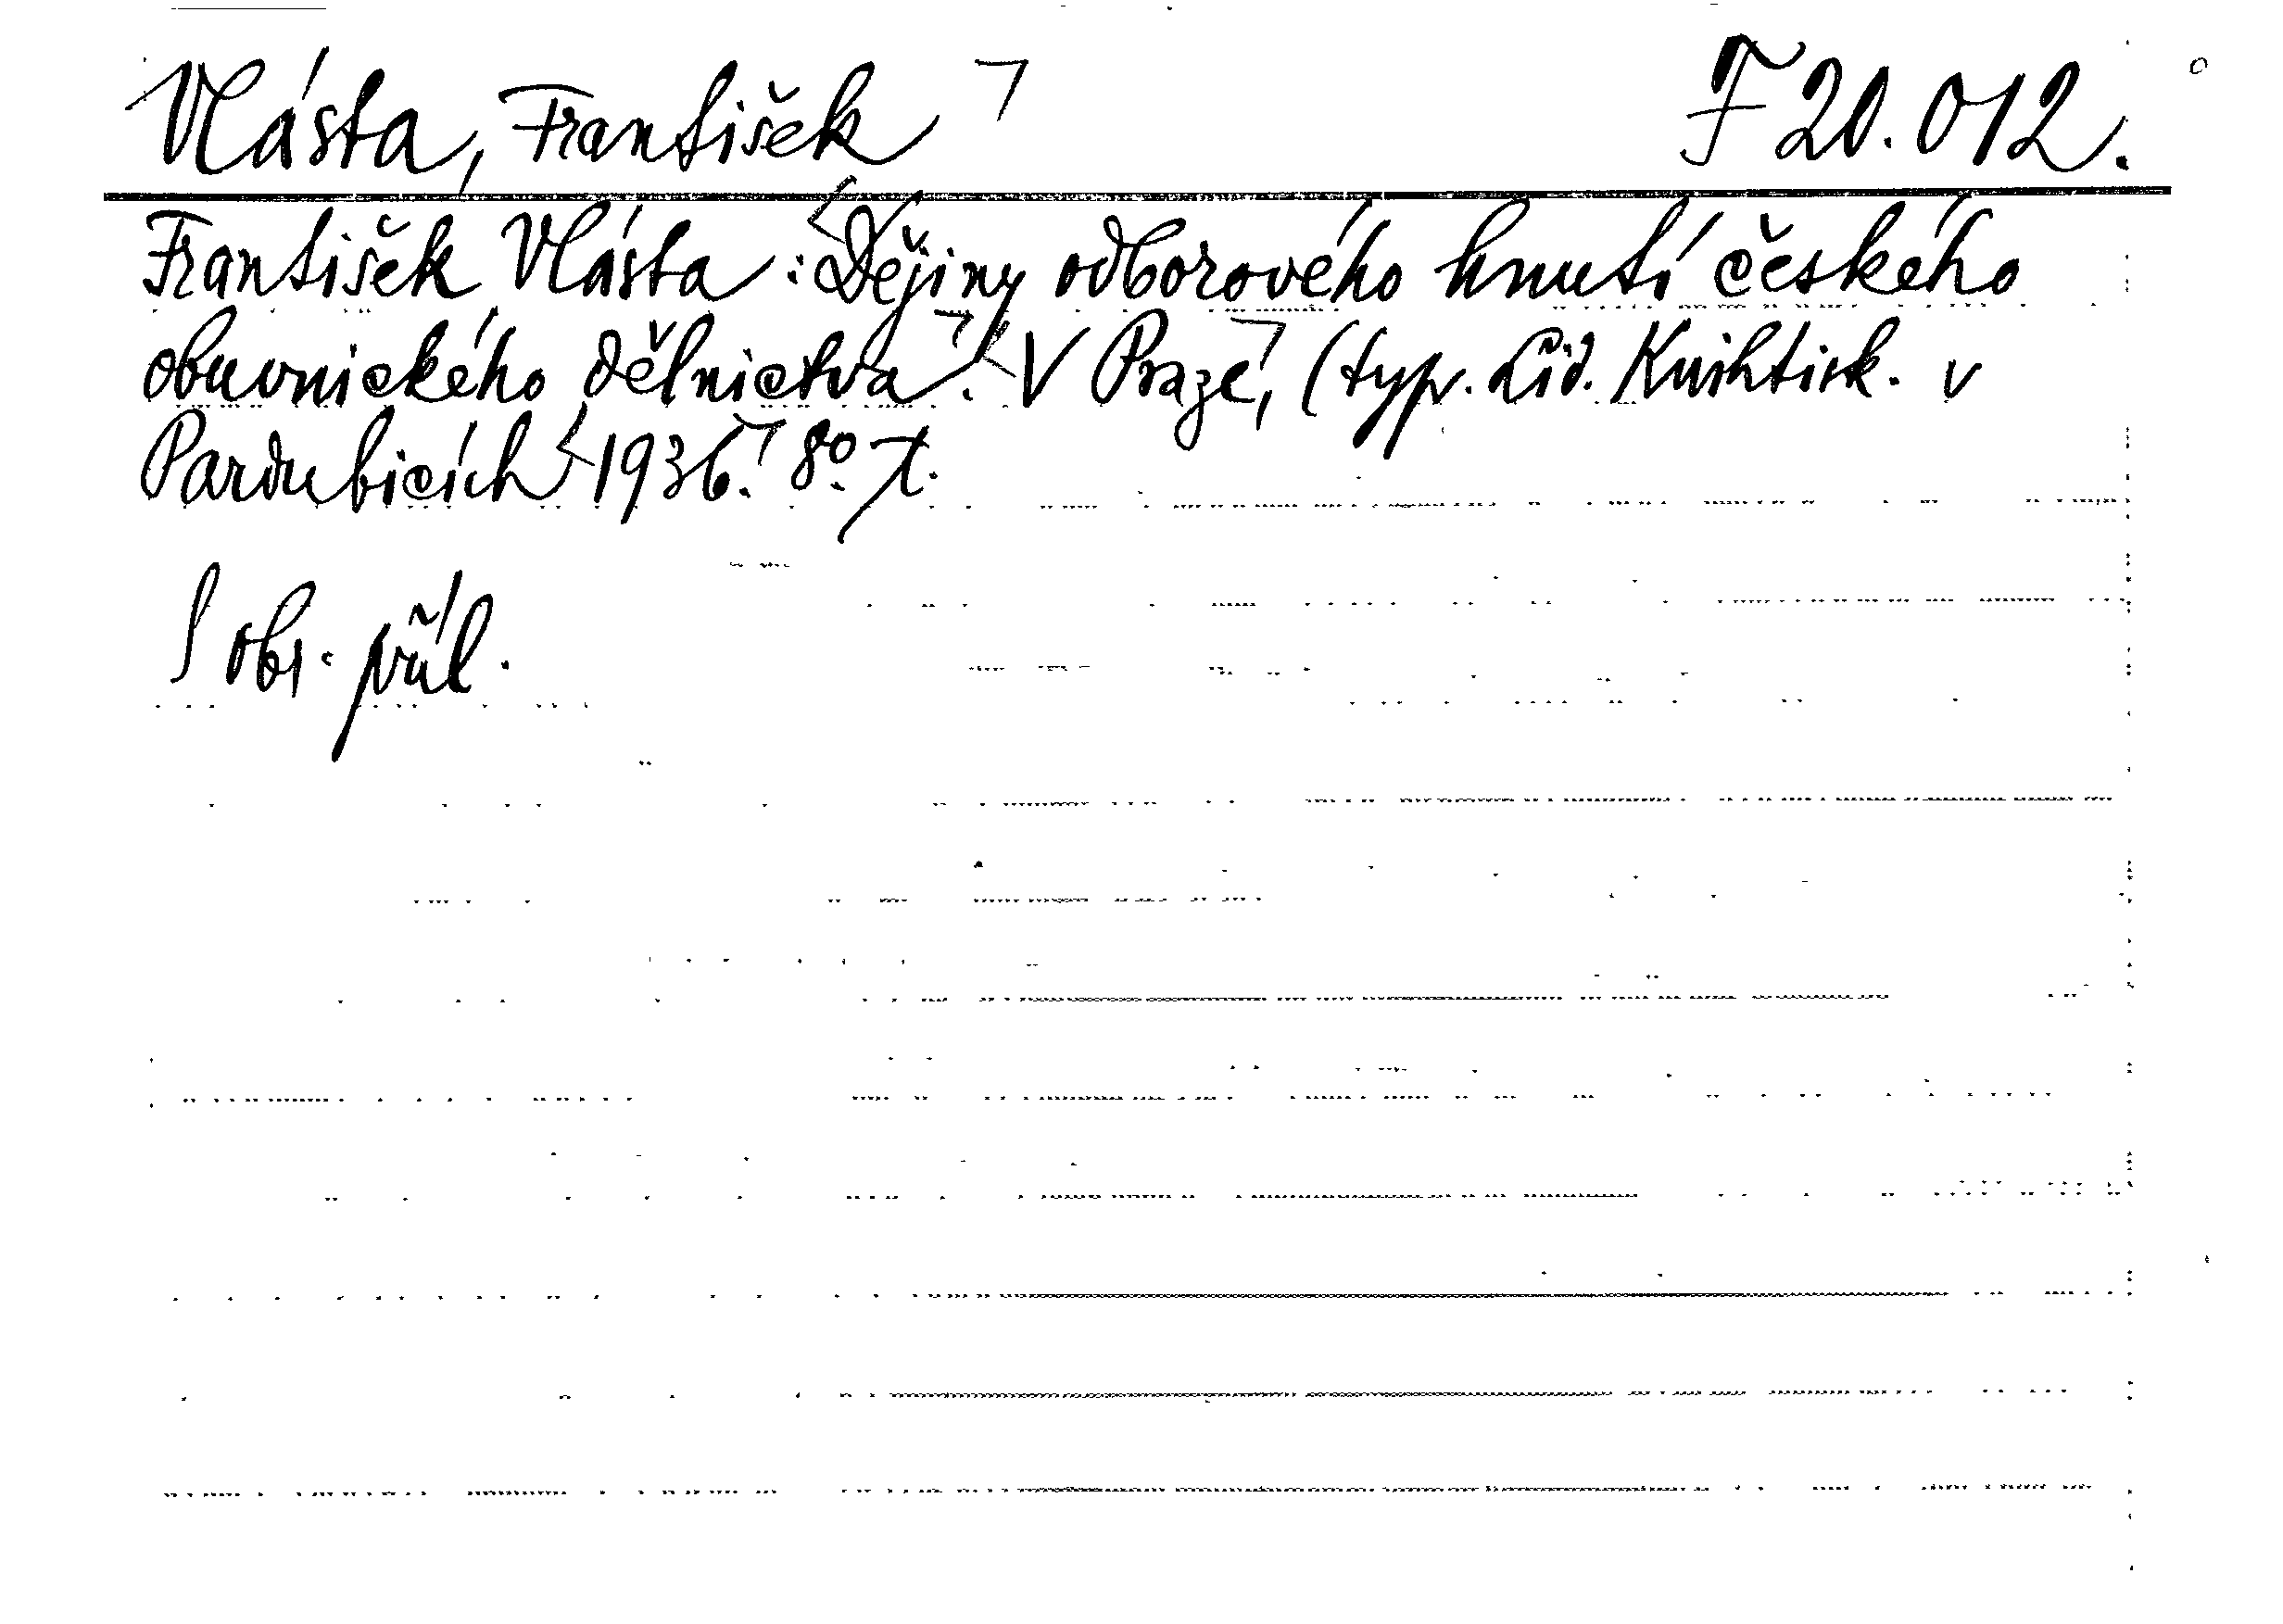 Vlásta, František F 20.012.
František Vlásta: Dějiny odborového hnutí českého
obuvnického dělnictva. V Praze, (typ. Lid. Knihtisk. v
Pardubicích 1936. 8o.
S obr. příl.